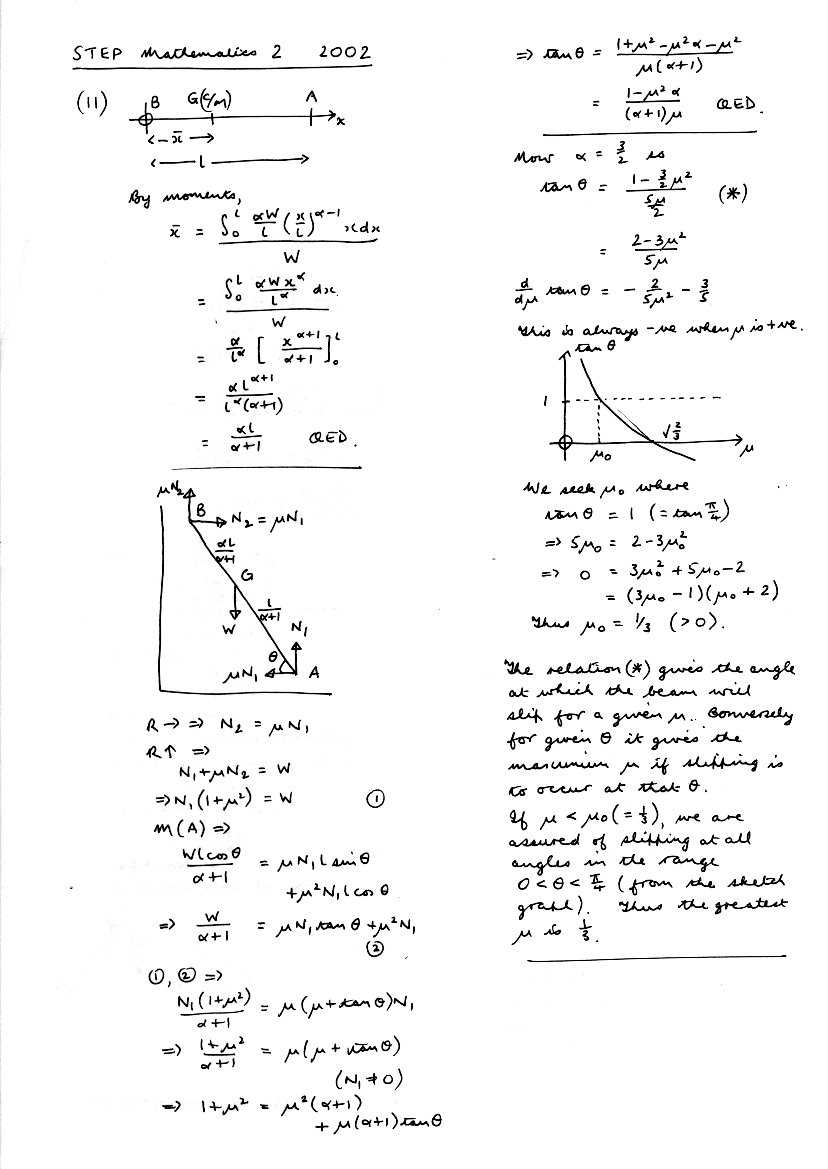 STEP Mathematics 2 2002
(11) B G(c/m) A x
<- x̄ ->
<- l ->
By moments,
x̄ = ∫₀ˡ αW/l (x/l)^(α-1) x dx / W
= ∫₀ˡ αWx^α/l^α dx / W
= α/l^α [ x^(α+1)/(α+1) ]₀ˡ
= αl^(α+1)/(l^α(α+1))
= αl/(α+1) QED.
μN₂
B N₂ = μN₁
αl/(α+1)
G
l/(α+1)
W N₁
θ
μN₁ A
R→ => N₂ = μN₁
R↑ =>
N₁+μN₂ = W
=> N₁(1+μ²) = W ①
M(A) =>
Wl cosθ/(α+1) = μN₁ l sinθ
+μ²N₁ l cosθ
=> W/(α+1) = μN₁ tanθ + μ²N₁
②
①, ② =>
N₁(1+μ²)/(α+1) = μ(μ+tanθ)N₁
=> (1+μ²)/(α+1) = μ(μ+tanθ)
(N₁≠0)
=> 1+μ² = μ²(α+1)
+ μ(α+1)tanθ
=> tanθ = (1+μ²-μ²α-μ²)/(μ(α+1))
= (1-μ²α)/((α+1)μ) QED.
Now α = 3/2 is
tanθ = (1-3/2 μ²)/(5μ/2) (*)
= (2-3μ²)/5μ
d/dμ tanθ = - 2/5μ² - 3/5
This is always -ve when μ is +ve.
tanθ
1
√(2/3)
μ₀ μ
We seek μ₀ where
tanθ = 1 (= tan π/4)
=> 5μ₀ = 2-3μ₀²
=> 0 = 3μ₀²+5μ₀-2
= (3μ₀-1)(μ₀+2)
Thus μ₀ = 1/3 (>0).
The relation (*) gives the angle
at which the beam will
slip for a given μ. Conversely
for given θ it gives the
maximum μ if slipping is
to occur at that θ.
If μ < μ₀(=1/3), we are
assured of slipping at all
angles in the range
0<θ<π/4 (from the sketch
graph). Thus the greatest
μ is 1/3.